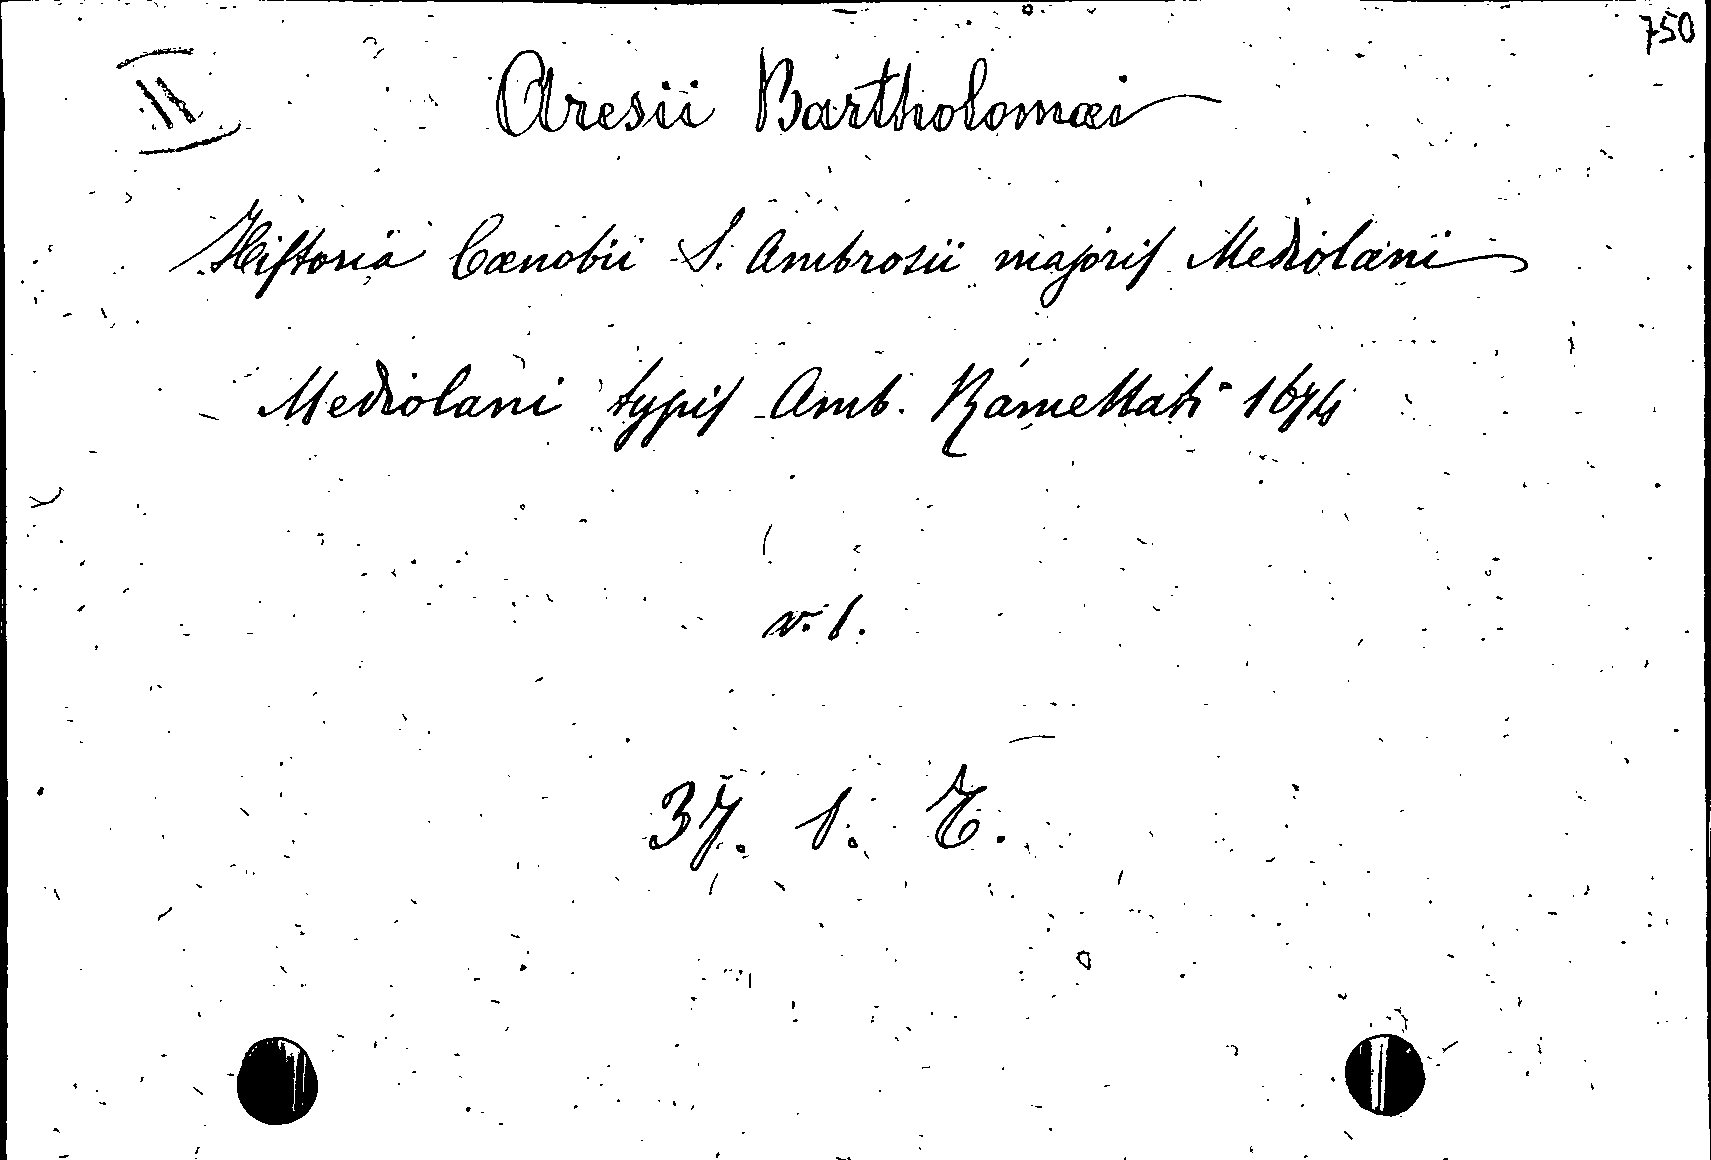 750
II
Aresii Bartholomæi
Hiſtoria Cœnobii S. Ambrosii majoriſ Mediolani
Mediolani typiſ Amb. Ramellati 1674
v. 1.
37. 1. E.